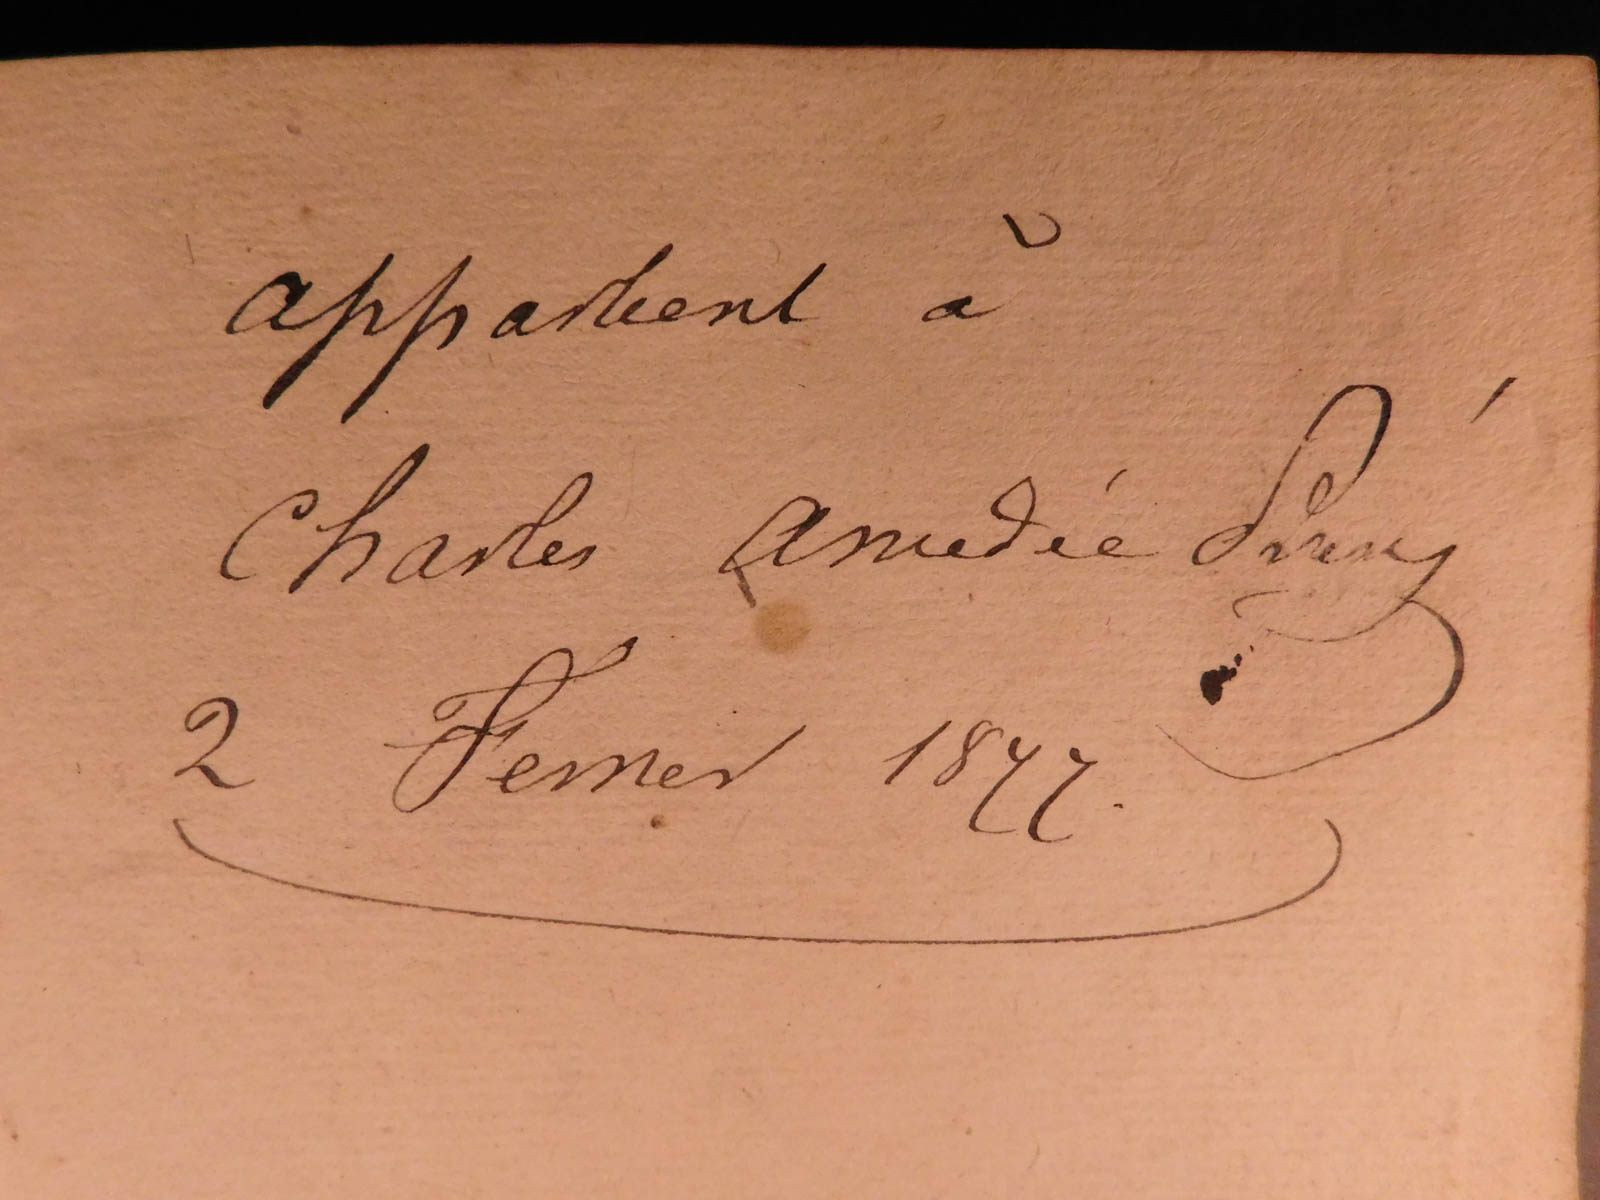 appartient à
Charles Amedée
2 Fevrier 1877.